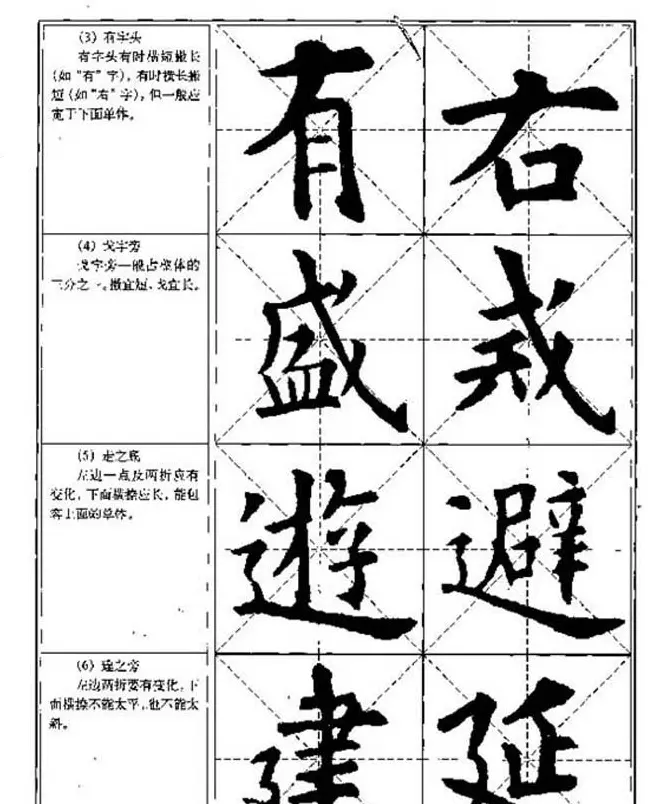 （3）有字头
有字头有时横短撇长
（如“有”字），有时横长撇
短（如“右”字），但一般应
宽于下面单体。
有 右
（4）戈字旁
戈字旁一般占整体的
三分之二。撇宜短，戈宜长。
盛 戒
（5）走之底
左边一点及两折应有
变化，下面横捺应长，能包
容上面的单体。
遊 避
（6）建之旁
左边两折要有变化，下
面横捺不能太平，也不能太
斜。
建 延